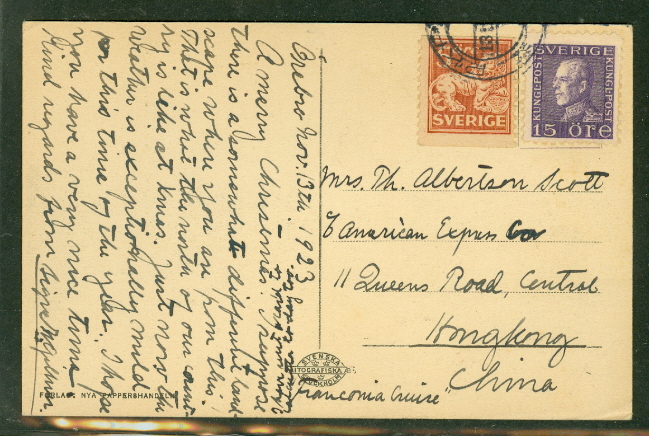 Örebro Nov. 13th 1923
A merry Christmas. I suppose
there is a somewhat different land-
scape where you are from this!
That is what the north of our count-
ry is like at times. Just now the
weather is exceptionally mild
for this time of the year. I hope
you have a very nice time.
Kind regards from Signe
SVERIGE
SVERIGE
KUNGEPOST
KUNGEPOST
15 ÖRE
Mrs. Th. Albertson Scott
℅ American Express Co
11 Queens Road, Central
Hongkong
China
"Franconia Cruise"
SVENSKA
LITOGRAFISKA
STOCKHOLM
FÖRLAG: NYA PAPPERSHANDELN